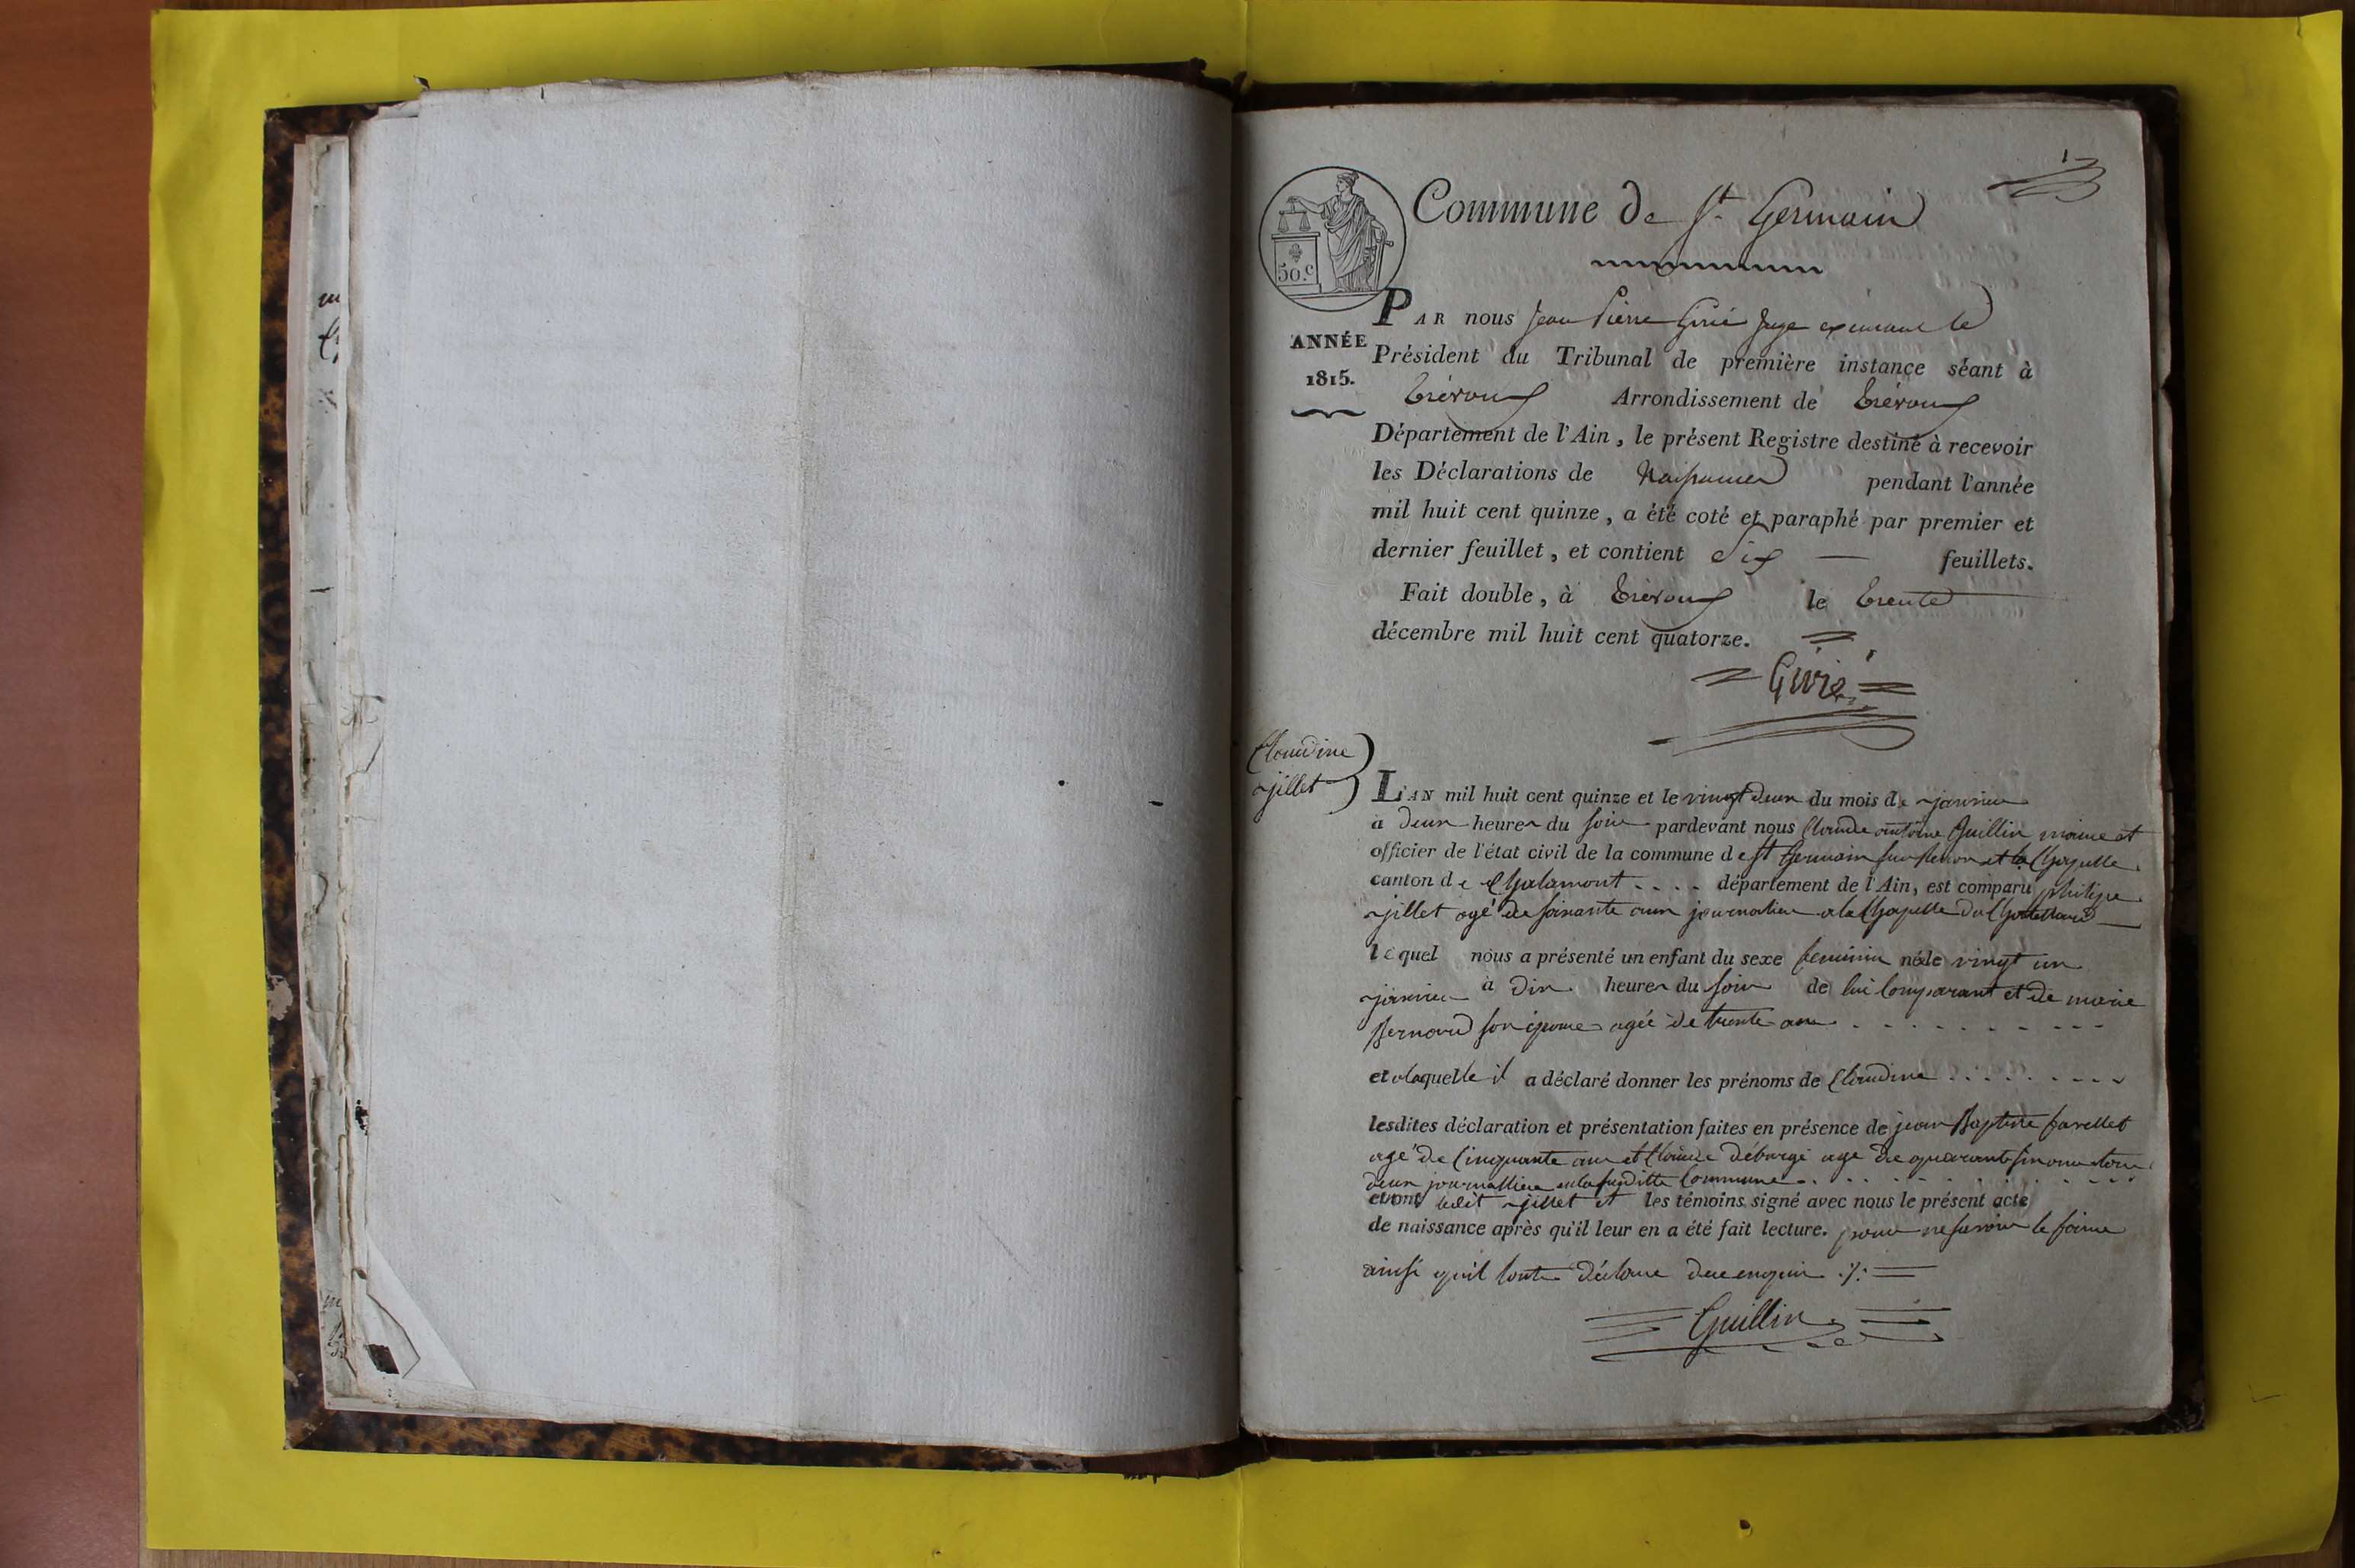 1
Commune de St. Germain
50.c
ANNÉE
1815.
PAR nous Jean Pierre Givié Juge exerceant le
Président du Tribunal de première instance séant à
Trévoux Arrondissement de Trévoux
Département de l'Ain, le présent Registre destiné à recevoir
les Déclarations de Naissances pendant l'année
mil huit cent quinze, a été coté et paraphé par premier et
dernier feuillet, et contient Six — feuillets.
Fait double, à Trévoux le trente
décembre mil huit cent quatorze.
Givié
Claudine
jillet
L'AN mil huit cent quinze et le vingt deux du mois de janvier
à deux heures du soir pardevant nous Claude antoine Guillin maire et
officier de l'état civil de la commune de st Germain sur Renon et la Chapelle
canton de Chalamont .... département de l'Ain, est comparu philipe
jillet agé de soixante ans journalier a la Chapelle du Chatellard
lequel nous a présenté un enfant du sexe feminin née le vingt un
janvier à dix heures du soir de lui Comparant et de marie
Bernard son épouse agée de trente ans
et a laquelle il a déclaré donner les prénoms de Claudine
lesdites déclaration et présentation faites en présence de jean Baptiste
agé de Cinquante ans et Claude Débargé agé de quarante tous
deux journalliers en la susditte Commune
et ont ledit jillet et les témoins signé avec nous le présent acte
de naissance après qu'il leur en a été fait lecture. pour ne savoir le faire
ainsi qu'il l'ont déclaré de ce enquis ./.
Guillin